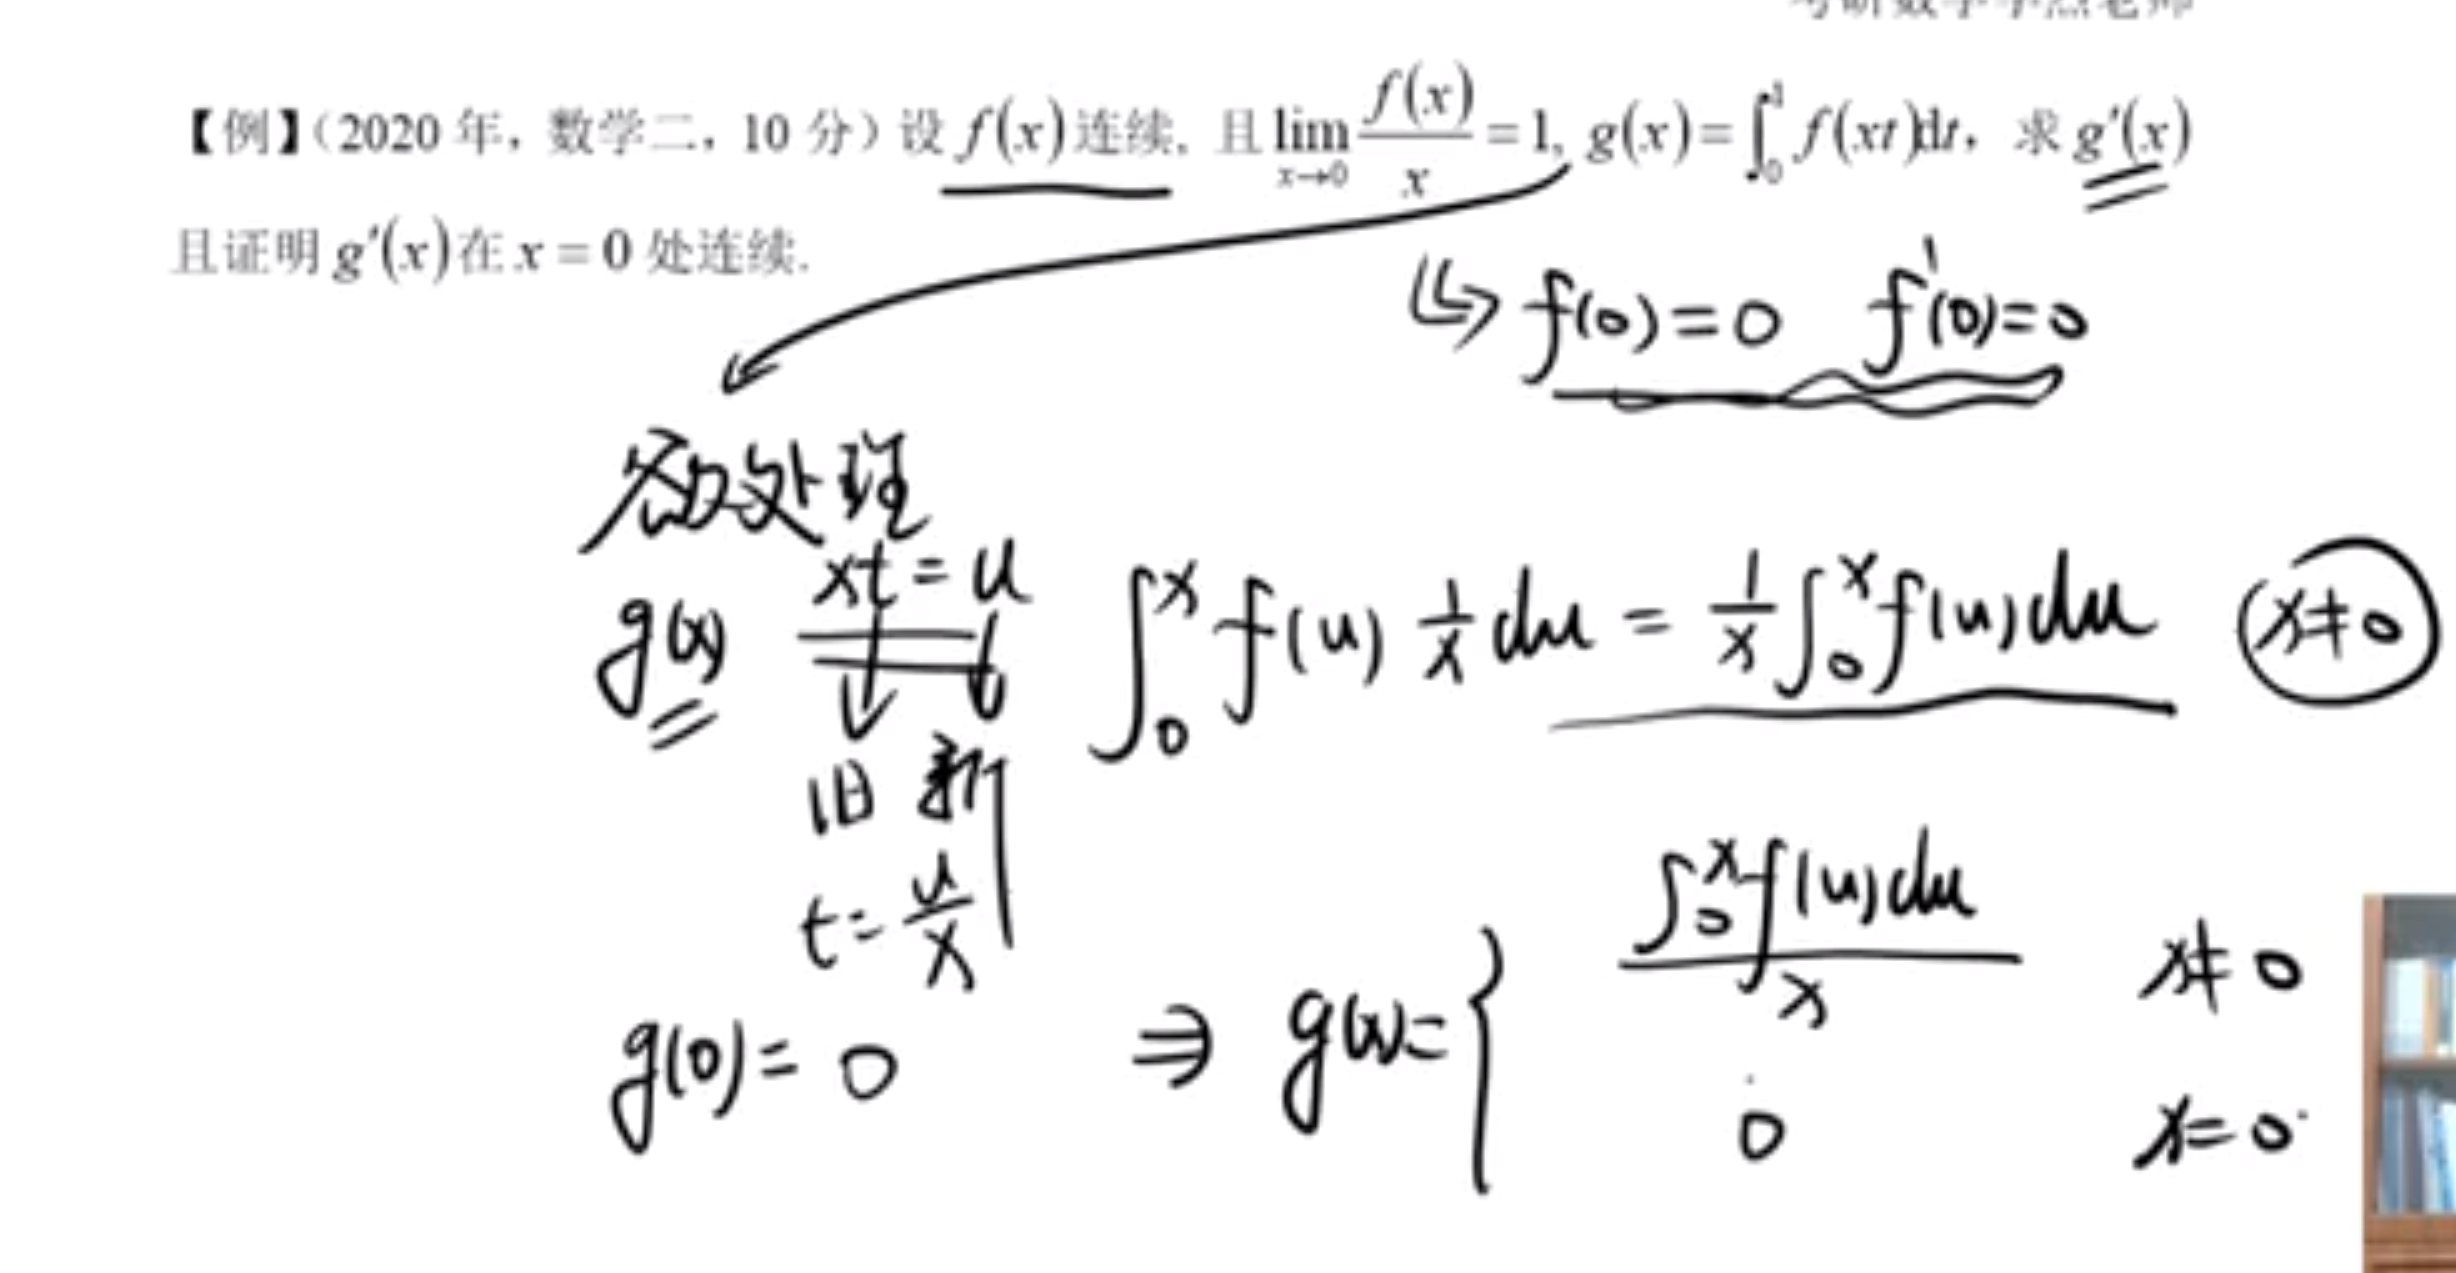 【例】(2020 年，数学二，10 分) 设 f(x) 连续，且 lim_{x→0} f(x)/x = 1, g(x) = ∫_0^1 f(xt)dt，求 g'(x)
且证明 g'(x) 在 x = 0 处连续.
f(0)=0 f'(0)=0
处理
g(x) xt=u ∫_0^x f(u) 1/x du = 1/x ∫_0^x f(u)du (x≠0)
旧 新
t = u/x
g(0)=0 ⇒ g(x)= { ∫_0^x f(u)du / x x≠0
0 x=0